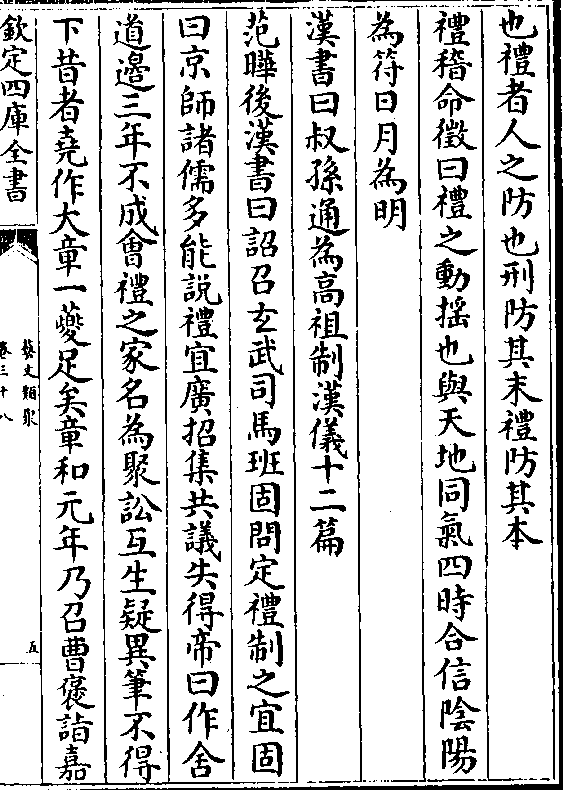 也禮者人之防也刑防其末禮防其本
禮稽命徵曰禮之動揺也與天地同氣四時合信陰陽
為符日月為明
漢書曰叔孫通為高祖制漢儀十二篇
范曄後漢書曰詔召玄武司馬班固問定禮制之宜固
曰京師諸儒多能説禮宜廣招集共議失得帝曰作舍
道邉三年不成會禮之家名為聚訟互生疑異筆不得
下昔者堯作大章一䕫足矣章和元年乃召曹褒詣嘉
欽定四庫全書
藝文類聚
卷三十八
五